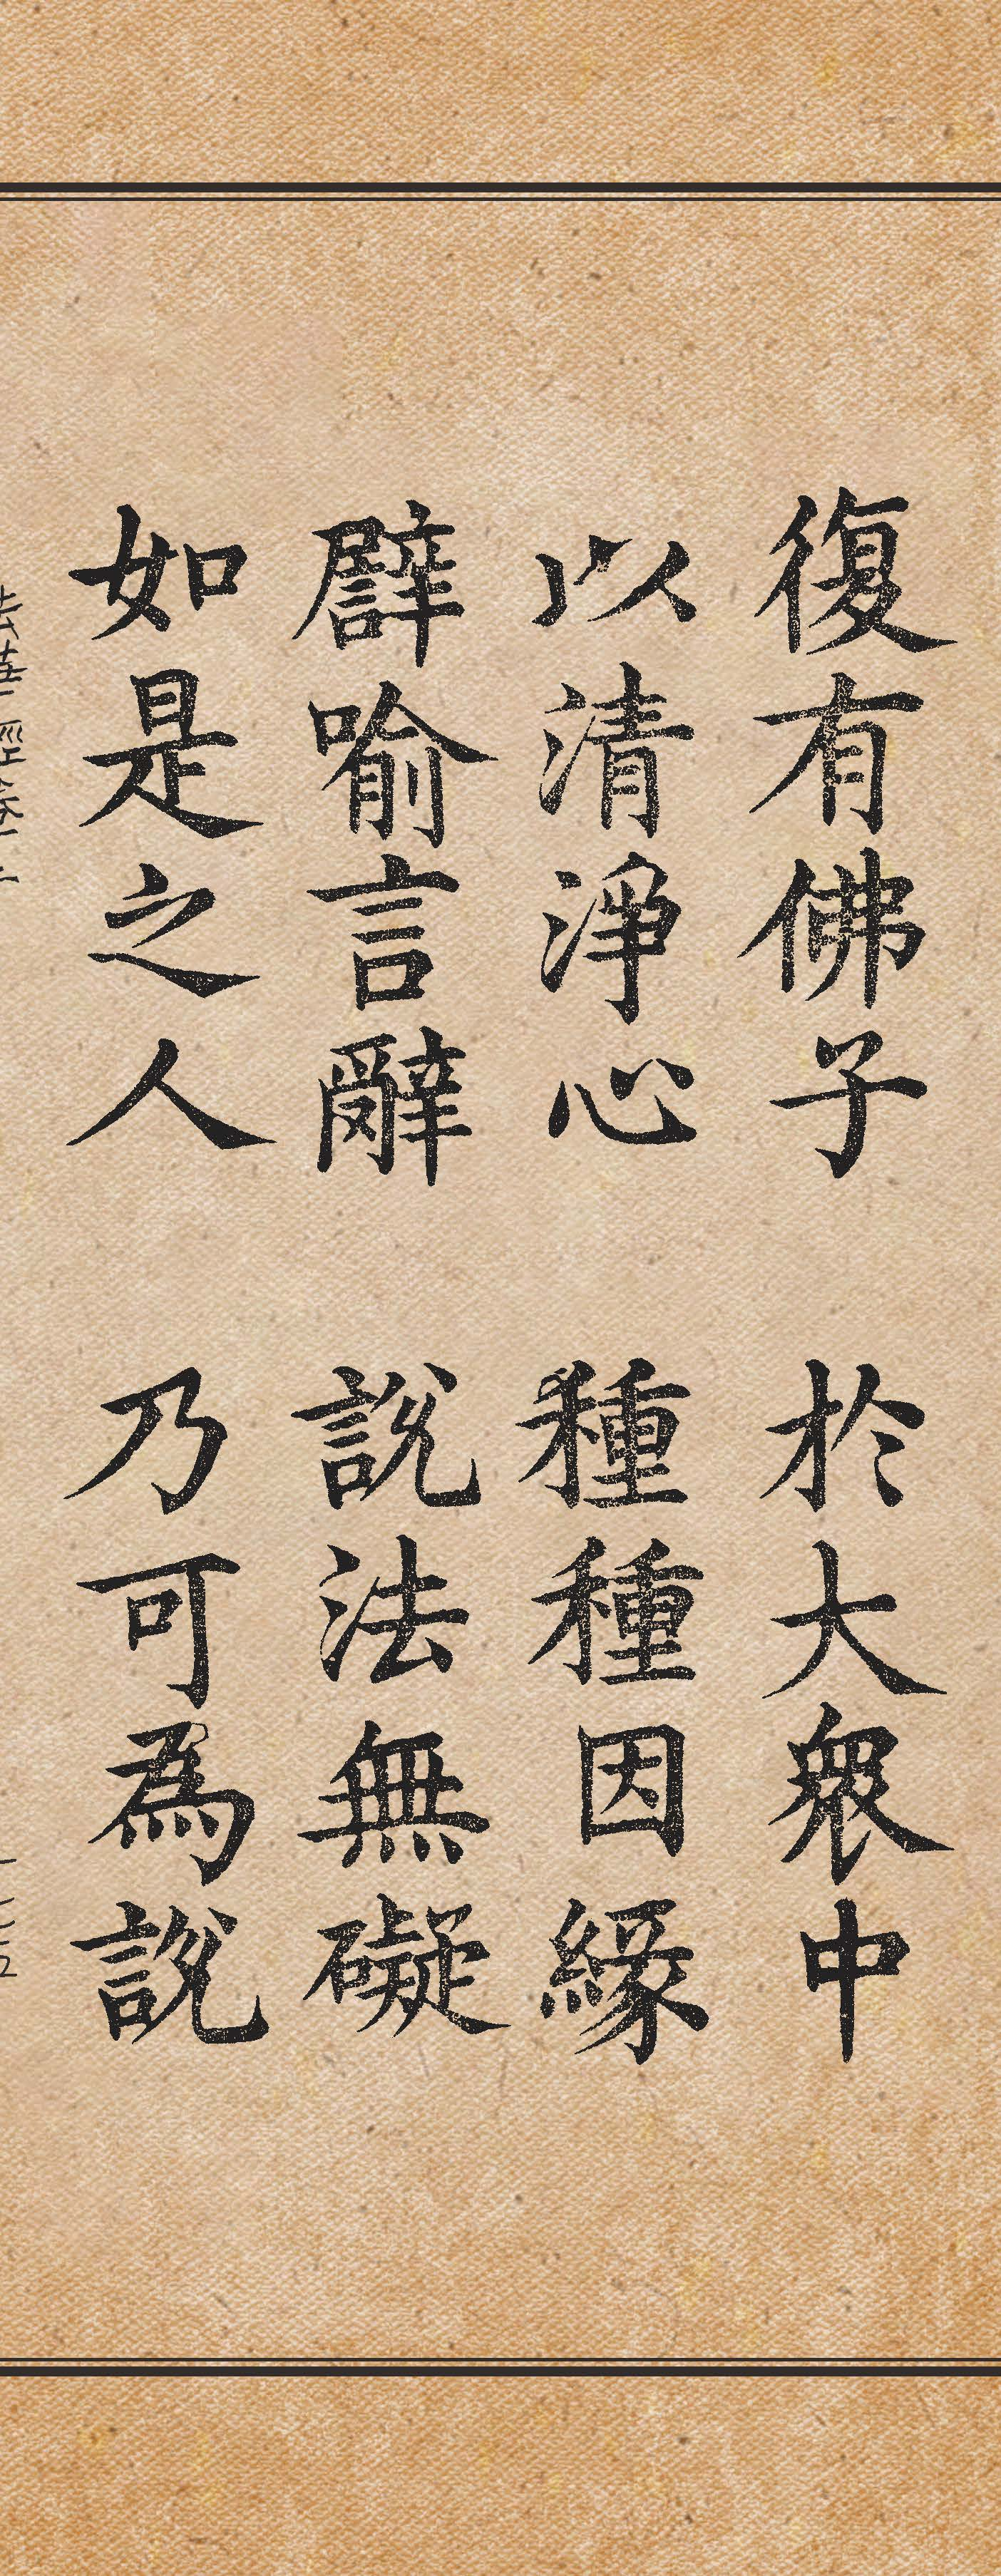 復有佛子 於大衆中
以清淨心 種種因緣
譬喻言辭 說法無礙
如是之人 乃可為說